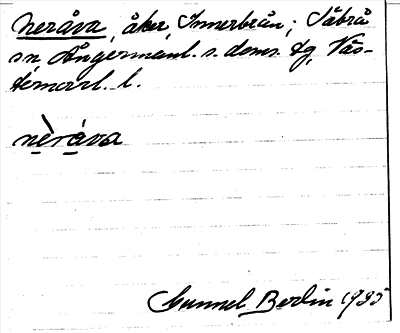 Neråva, åker, Innerbrån; Säbrå
sn Ångermanl. s. doms. tg, Väs-
ternorrl. l.
nèráva
Gunnel Berlin 1935